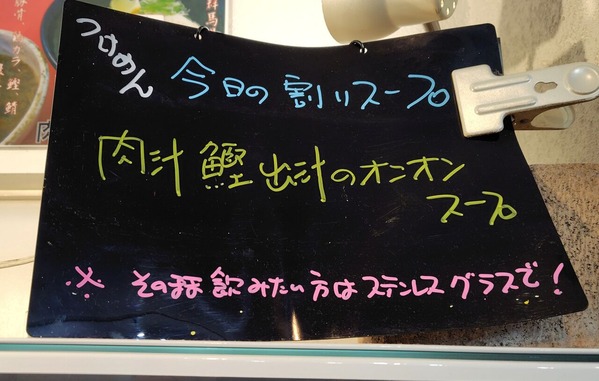 つけめん
今日の割りスープ
肉汁鰹出汁のオニオン
スープ
※ そのまま飲みたい方はステンレスグラスで!